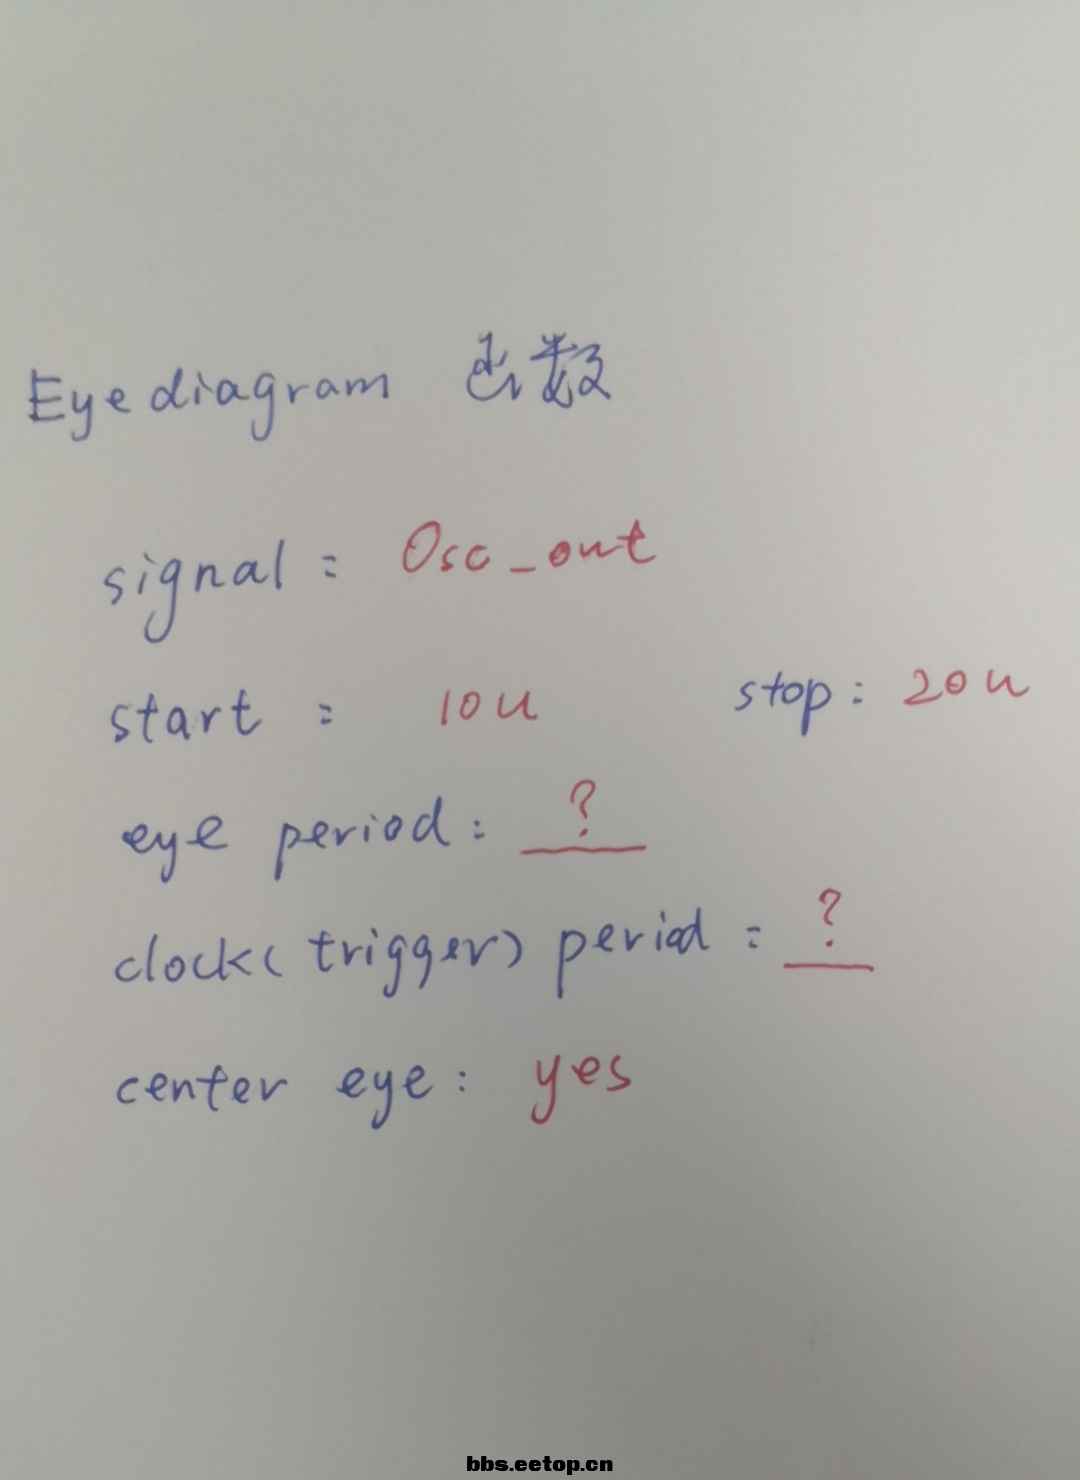 Eye diagram 函数
signal: Osc_out
start: 10u stop: 20u
eye period: ?
clock(trigger) period: ?
center eye: yes
bbs.eetop.cn